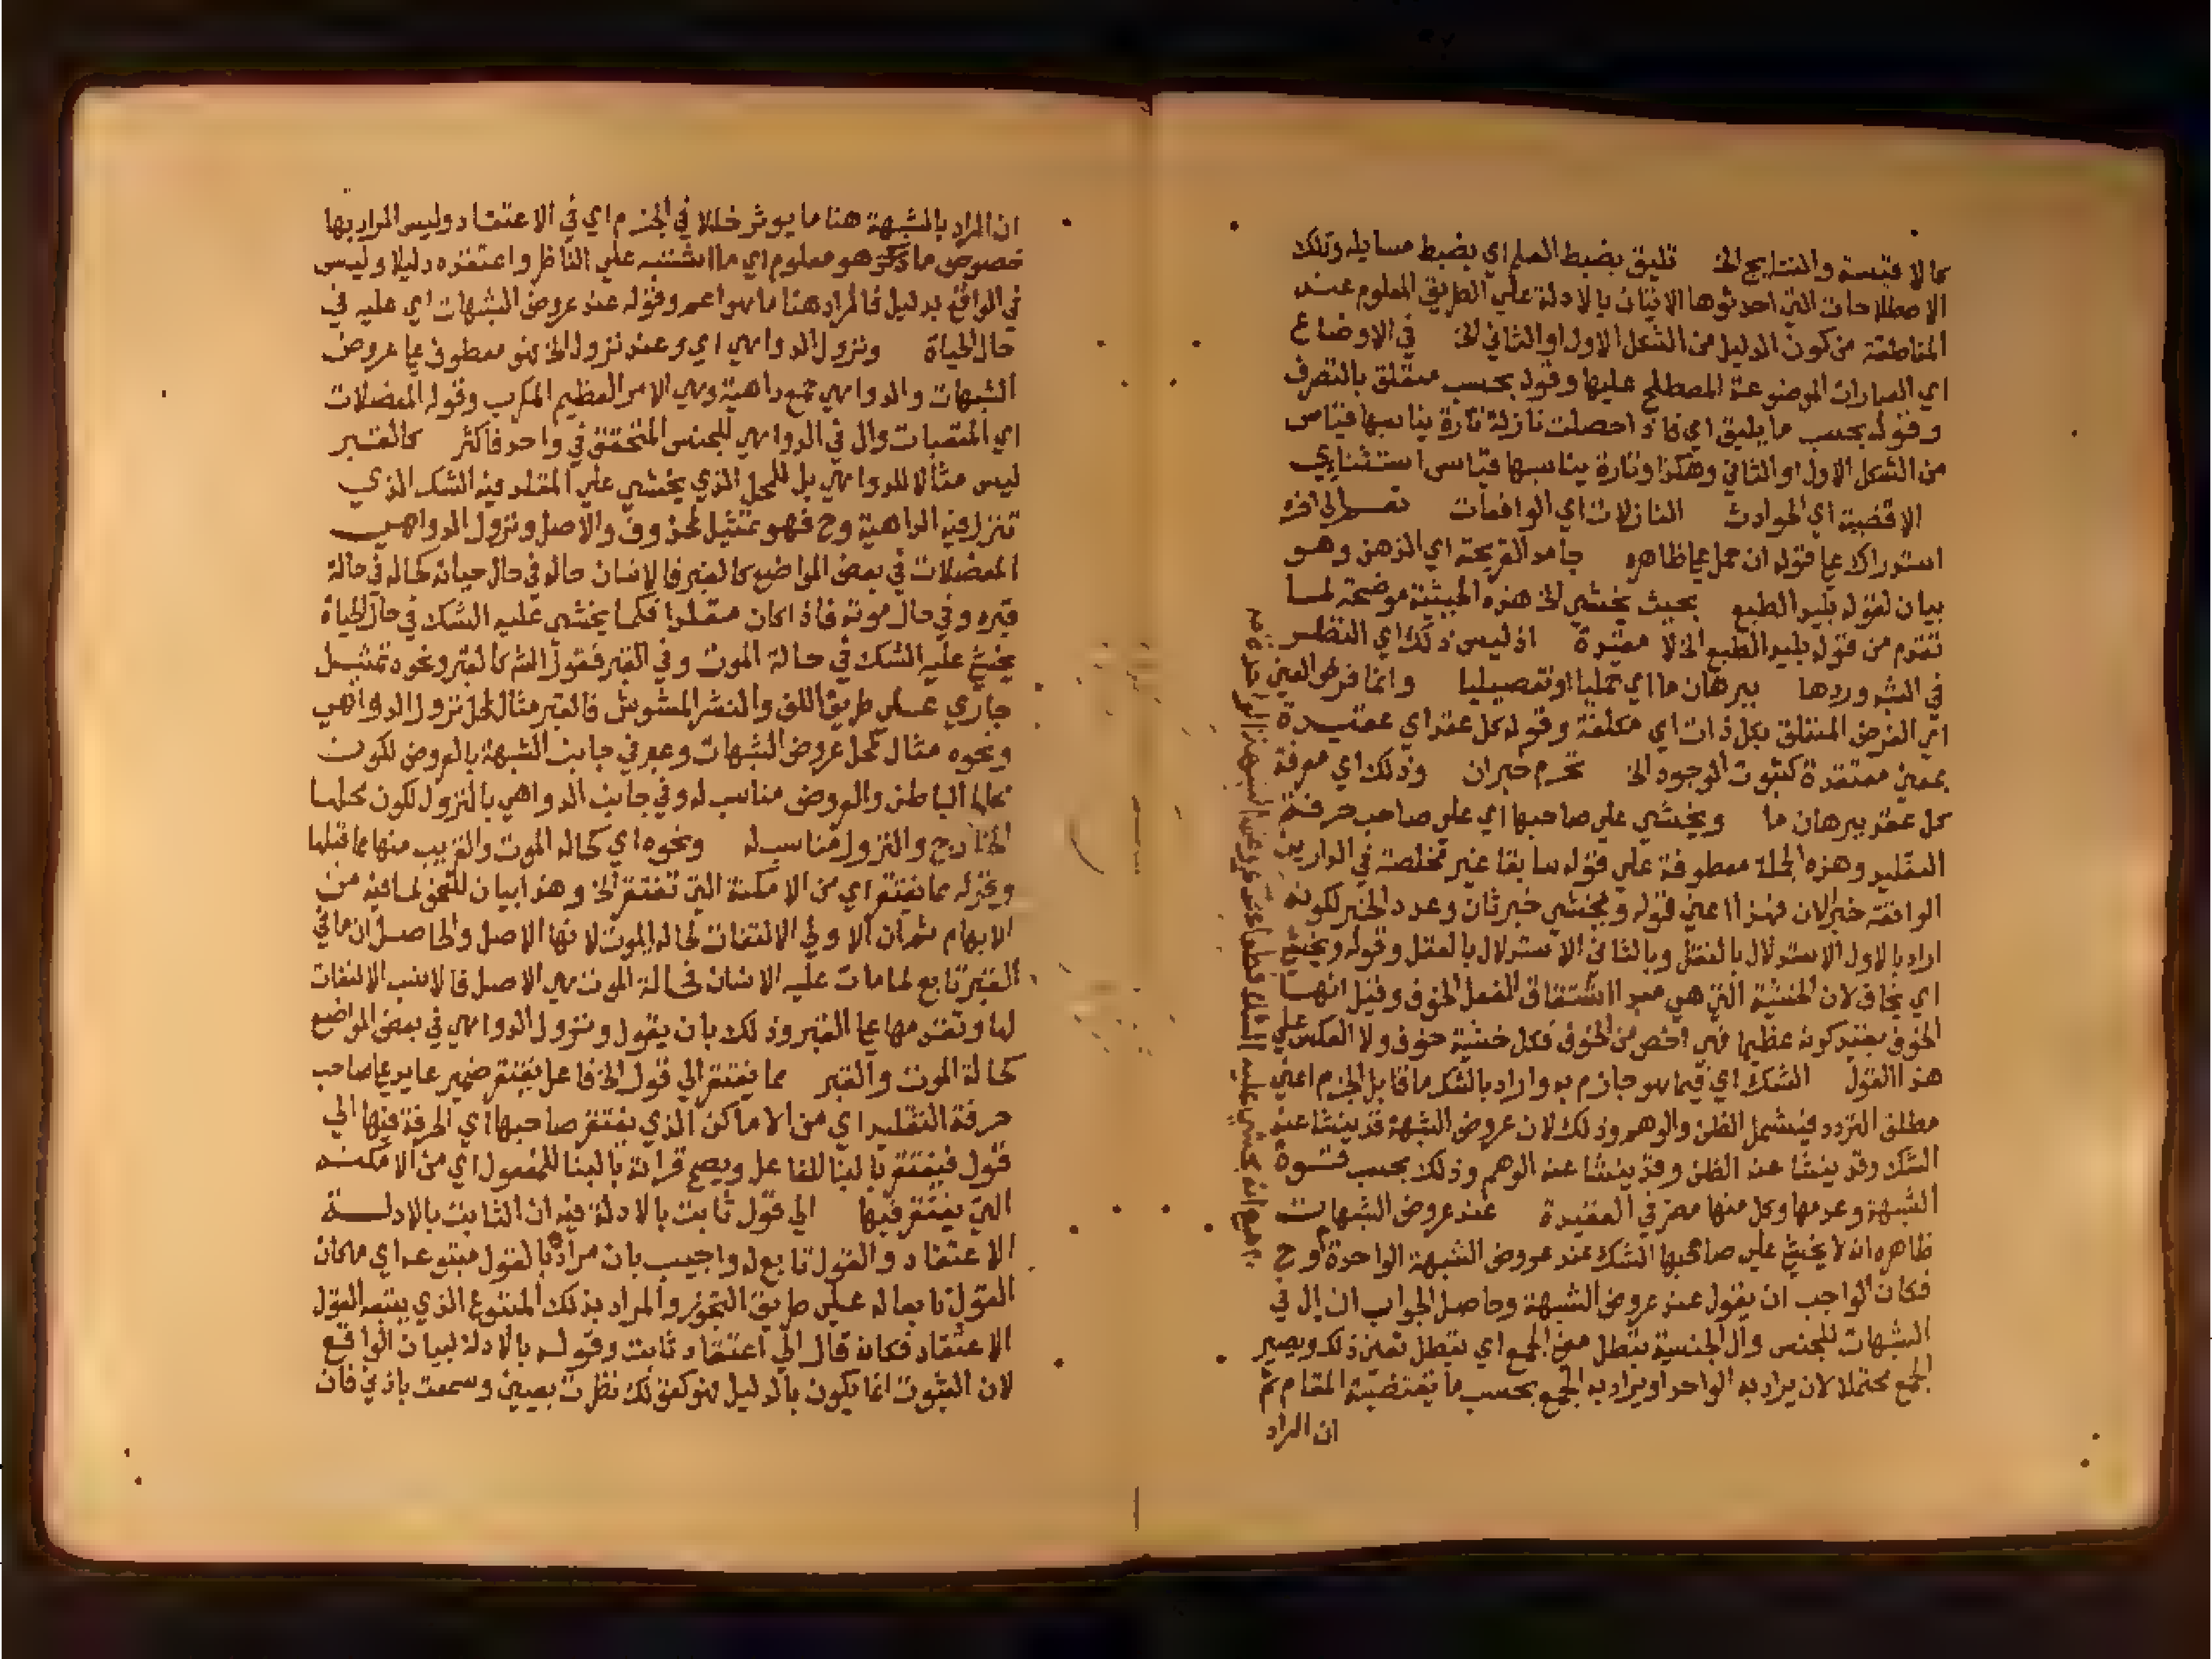 كالاقيسة والنتايج الخ تليق بضبط العلم اي بضبط مسايله وتلك
الاصطلاحات التي احدثوها الاتيان بالادلة علي الطريق المعلوم عند
المناطقة من كون الدليل من الشكل الاول او الثاني الخ في الاوضاع
اي العبارات الموضوعة المصطلح عليها وقوله بحسب متعلق بالتصرف
وقوله بحسب ما يليق اي فاذا حصلت نازلة تارة يناسبها قياس
من الشكل الاول او الثاني وهكذا وتارة يناسبها قياس استثنايي
الاقضية اي الحوادث النازلات اي الواقعات نعم الي اخره
استدراك علي قوله ان حمل علي ظاهره جامد القريحة اي الذهن وهو
بيان لقوله بليد الطبع بحيث يخشي الخ هذه الحيثية موضحة لما
تقدم من قوله بليد الطبع الخ لا مقيدة اذ ليس ذلك اي النظر
في الشبه وردها ببرهان ما اي جمليا او تفصيليا وانما فرض العين
اي الفرض المتعلق بكل ذات اي مكلفة وقوله كل عقد اي عقيدة
بمعني معتقدة كثبوت الوجود الخ تحرم خبران وذلك اي معرفة
كل عقد ببرهان ما ويخشي علي صاحبها اي علي صاحب حرفة
التقليد وهذه الجملة معطوفة علي قوله سابقا غير مخلصة في الدارين
الواقعة خبر لان فهذا اعني قوله ويخشي خبر ثان وعدد الخبر لكونه
اراد بالاول الاستدلال بالنقل وبالثاني الاستدلال بالعقل وقوله ويخشي
اي يخاف لان الخشية التي هي مبدا اشتقاق الفعل الخوف وقيل انها
الخوف بقيد كونه عظيما فهي اخص من الخوف فكل خشية خوف ولا العكس علي
هذا القول الشك اي فيما هو جازم به واراد بالشك ما قابل الجزم اعني
مطلق التردد فيشمل الظن والوهم وذلك لان عروض الشبهة قد ينشا عنه
الشك وقد ينشا عنه الظن وقد ينشا عنه الوهم وذلك بحسب قوة
الشبهة وعدمها وكل منها مضر في العقيدة عند عروض الشبهات
ظاهره انه لا يخشي علي صاحبها الشك عند عروض الشبهة الواحدة وح
فكان الواجب ان يقول عند عروض الشبهة وحاصل الجواب ان ال في
الشبهات للجنس وال الجنسية تبطل معني الجمع اي تبطل تعين ذلك ويصير
الجمع محتملا لان يراد به الواحد او يراد به الجمع بحسب ما يقتضيه المقام ثم
ان المراد
ان المراد بالشبهة هنا ما يوثر خللا في الجزم اي في الاعتقاد وليس المراد بها
خصوص ما ذكر هو معلوم اي ما اشتبه علي الناظر واعتقده دليلا وليس
في الواقع بدليل فالمراد هنا ما هو اعم وقوله عند عروض الشبهات اي عليه في
حال الحياة ونزول الدواهي اي وعند نزول الخ فهو معطوف علي عروض
الشبهات والدواهي جمع داهية وهي الامر العظيم المكرب وقوله المعضلات
اي المتعبات وال في الدواهي للجنس المتحقق في واحد فاكثر كالقبر
ليس مثالا للدواهي بل للمحل الذي يخشي علي المقلد فيه الشك الذي
تنزل فيه الداهية وح فهو تمثيل لمحذوف والاصل ونزول الدواهي
المعضلات في بعض المواضع كالقبر فالانسان حاله في حال حياته كحاله في حالة
قبره وفي حال موته فاذا كان مقلدا فكما يخشي عليه الشك في حال الحياة
يخشي عليه الشك في حالة الموت وفي القبر فقول الشه كالقبر ونحوه تمثيل
جاري علي طريق اللف والنشر المشوش فالقبر مثال لمحل نزول الدواهي
ونحوه مثال لمحل عروض الشبهات وعبر في جانب الشبهة بالعروض لكون
محلها الباطن والعروض مناسب له وفي جانب الدواهي بالنزول لكون محلها
الخارج والنزول مناسب له ونحوه اي كحالة الموت والقريب منها مما قبلها
وقوله مما يفتقر اي من الامكنة التي تفتقر الخ وهذا بيان للنحو لما فيه من
الابهام ثم ان الاولي الالتفات لحالة الموت لانها الاصل والحاصل ان ما في
القبر تابع لما مات عليه الانسان فحالة الموت هي الاصل فالانسب الالتفات
لها وتقديمها علي القبر وذلك بان يقول ونزول الدواهي في بعض المواضع
كحالة الموت والقبر مما يفتقر الي قول الخ فاعل يفتقر ضمير عايد علي صاحب
حرفة التقليد اي من الاماكن الذي يفتقر صاحبها اي الحرفة فيها الي
قول فيفتقر بالبنا للفاعل ويصح قراته بالبنا للمفعول اي من الامكنه
التي يفتقر فيها الي قول ثابت بالادلة فيه ان الثابت بالادلة
الاعتقاد والقول تابع له واجيب بان مراده بالقول متبوعه اي ما كان
القول تابعا له علي طريق التجوز والمراد بذلك المتبوع الذي يتبعه القول
الاعتقاد فكانه قال الي اعتقاد ثابت وقوله بالادلة لبيان الواقع
لان الثبوت انما يكون بالدليل فهو كقولك نظرت بعيني وسمعت باذني فان